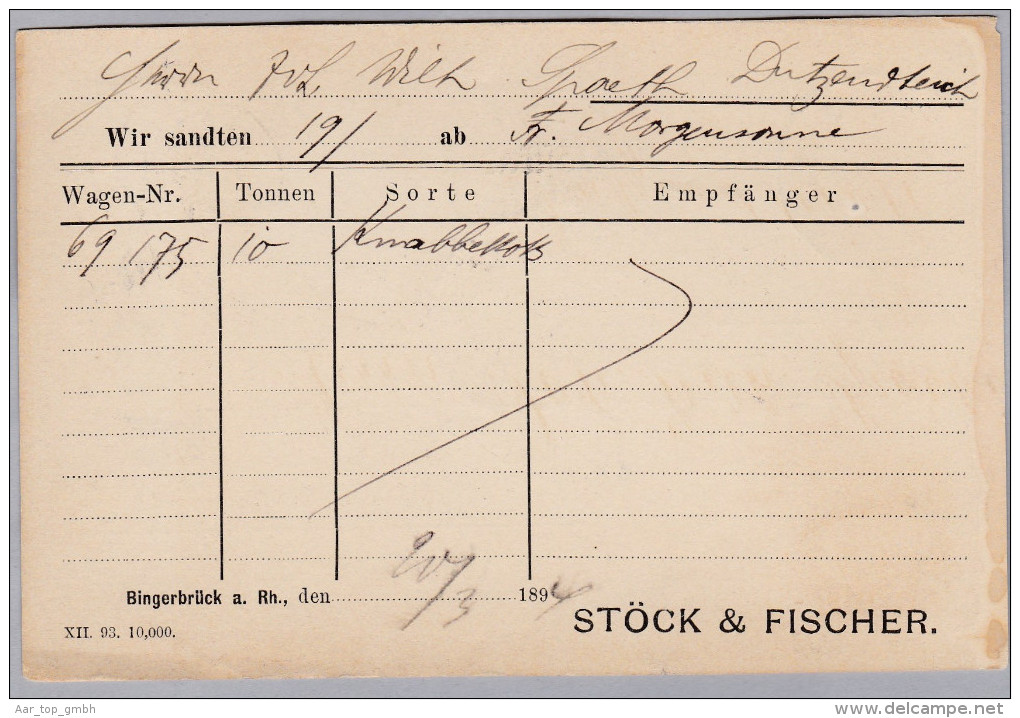 Herrn Joh. Wilh Spaeth Dutzendteich
Wir sandten 19/ ab Fr. Morgensonne
Wagen-Nr. Tonnen Sorte Empfänger
69 175 10 Knabbelkoks
Bingerbrück a. Rh., den 20/3 1894
STÖCK & FISCHER.
XII. 93. 10,000.
Aar_top_gmbh
delcampe.net